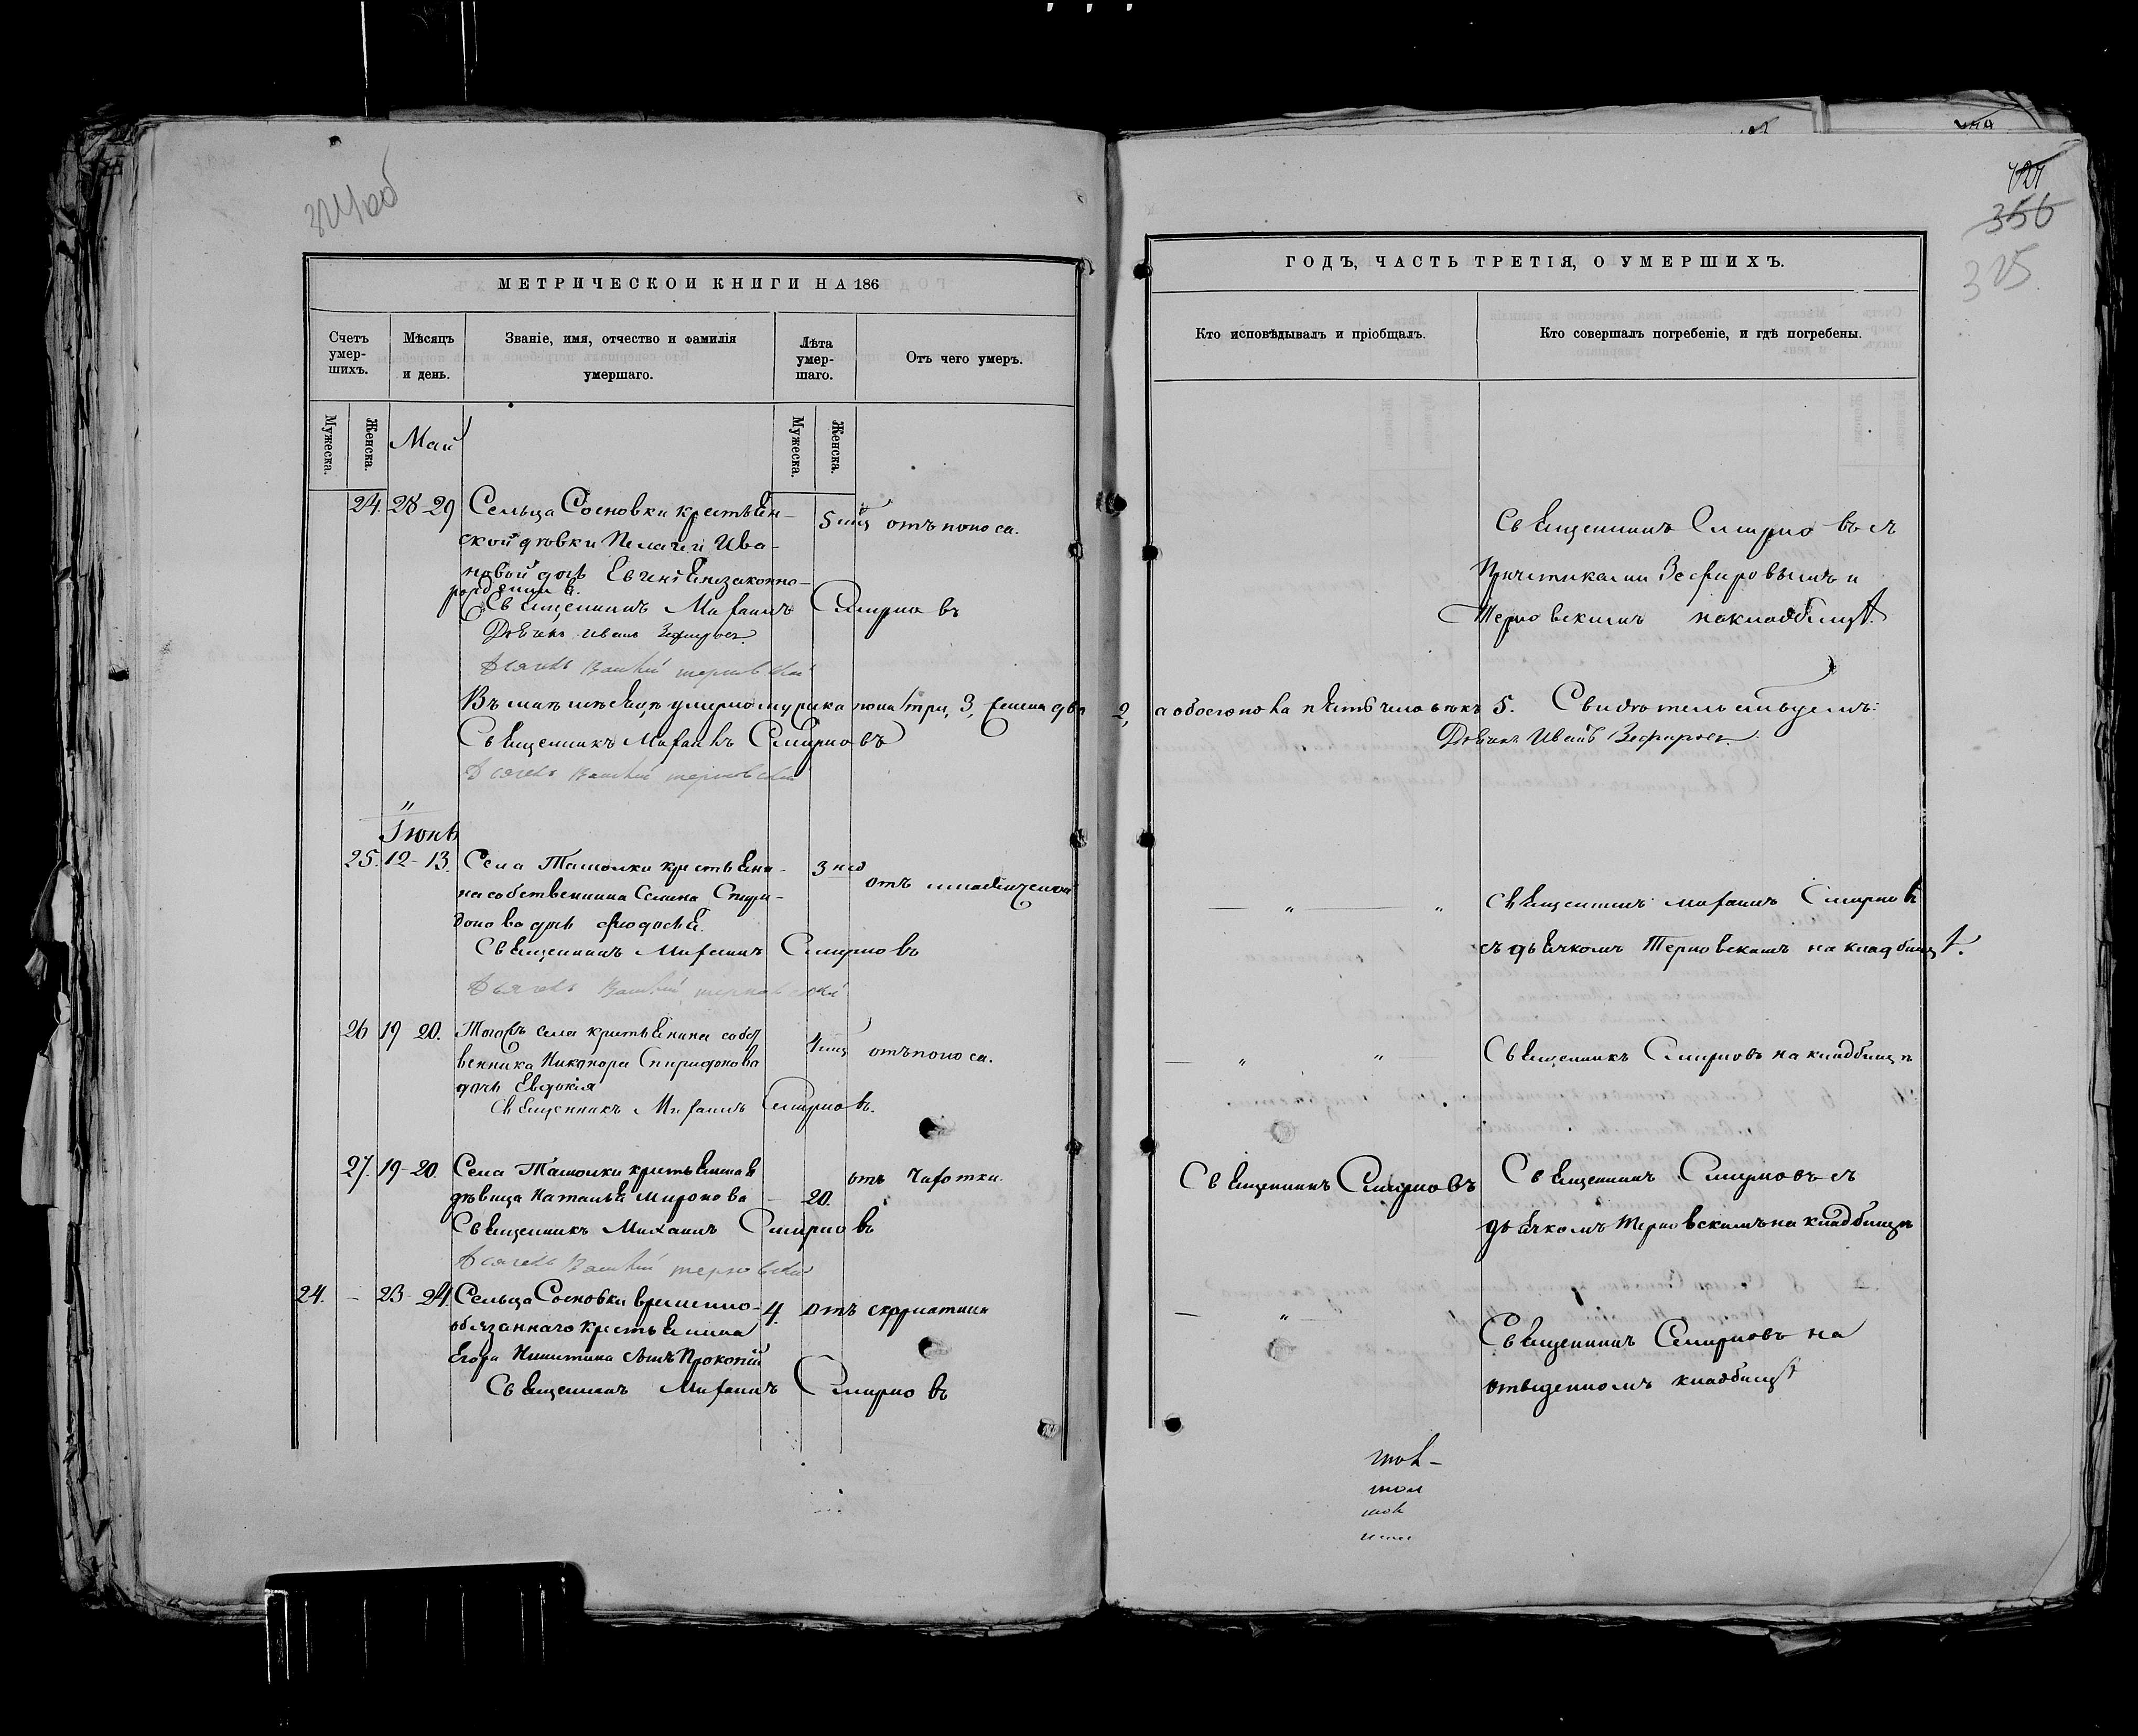 324об
МЕТРИЧЕСКОЙ КНИГИ НА 186
Счетъ умер-шихъ.
Мѣсяцъ и день.
Званіе, имя, отчество и фамилія умершаго.
Лѣта умер-шаго.
Отъ чего умеръ.
Мужеска.
Женска.
Май
Мужеска.
Женска.
24. 28-29 Сельца Сосновки крестьян-
5 мц отъ поноса.
ской дѣвки Пелагеи Ива-
новой дочь незаконно-
рожденна.
Священникъ Михаилъ Смирновъ
Дьячекъ Иванъ Зефировъ
Дьячекъ терновскій
Въ маѣ мѣсяцѣ умерло мужска пола три, 3, женска два
Священникъ Михаилъ Смирновъ
Дьячекъ терновскій
Іюнь
25. 12-13. Села Ташолки крестьяни-
3 нед
отъ младенческой
на собственника Семена Спири-
донова дочь Феодосья.
Священникъ Михаилъ Смирновъ
Дьячекъ терновскій
26 19 20. Тогожъ села крестьянина собст
4 мц отъ поноса.
венника Никонора Спиридонова
дочь Евдокія
Священникъ Михаилъ Смирновъ.
27. 19-20. Села Ташолки крестьянская
отъ чахотки.
дѣвица Наталья Миронова - 20.
Священникъ Михаилъ Смирновъ
Дьячекъ терновскій
24. - 23-24. Сельца Сосновки временно- 4. отъ скарлатины
обязаннаго крестьянина
Егора Никитина сынъ Прокопій
Священникъ Михаилъ Смирновъ
356
325
ГОДЪ, ЧАСТЬ ТРЕТІЯ, О УМЕРШИХЪ.
Кто исповѣдывалъ и пріобщалъ.
Кто совершалъ погребеніе, и гдѣ погребены.
Священникъ Смирновъ съ
Причетниками Зефировымъ и
Терновскимъ на кладбищѣ.
2, а обоего пола пять человѣкъ 5. Свидѣтельствуемъ:
Дьячекъ Иванъ Зефировъ.
— „ — „ Священникъ Михаилъ Смирновъ
съ дьячкомъ Терновскимъ на кладбищѣ.
— „ „ — Священникъ Смирновъ на кладбищѣ
Священникъ Смирновъ
Священникъ Смирновъ съ
дьячкомъ Терновскимъ на кладбищѣ
— „ —
Священникъ Смирновъ на
отведенномъ кладбищѣ